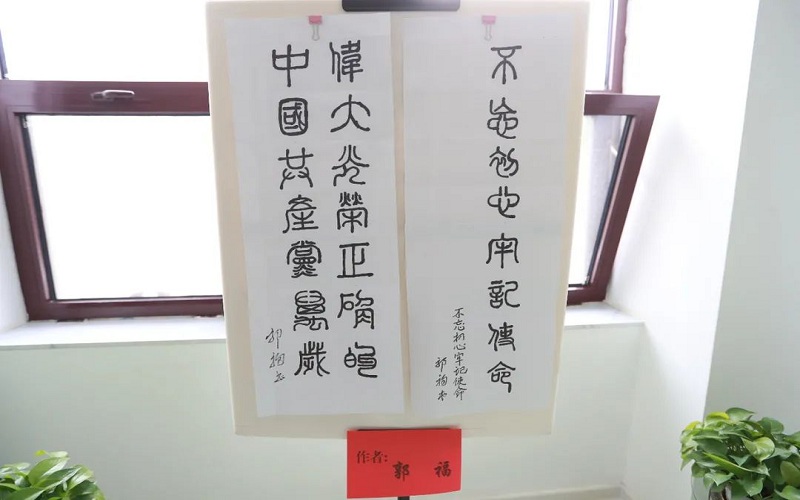 不忘初心牢记使命
不忘初心牢记使命
郭福书
偉大光榮正确的
中國共產黨萬歲
郭福书
作者：
郭 福